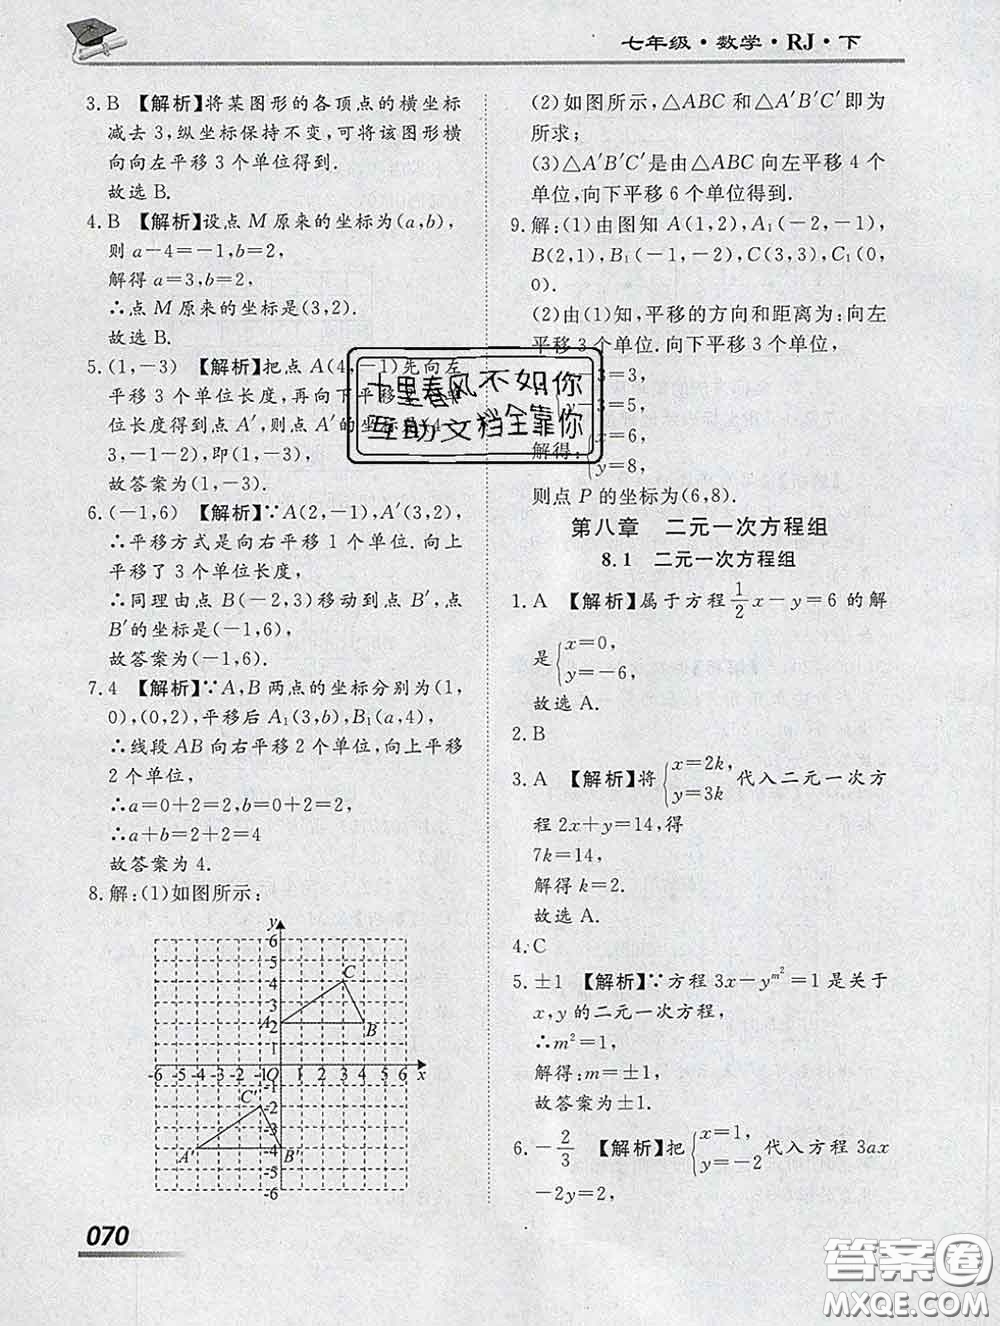 七年级·数学·RJ·下
3. B 【解析】将某图形的各顶点的横坐标
减去 3,纵坐标保持不变,可将该图形横
向向左平移 3 个单位得到.
故选 B.
4. B 【解析】设点 M 原来的坐标为(a,b),
则 a-4=-1,b=2,
解得 a=3,b=2,
∴点 M 原来的坐标是(3,2).
故选 B.
5. (1,-3) 【解析】把点 A(4,-1)先向左
平移 3 个单位长度,再向下平移
位长度得到点 A′,则点 A′的坐标是(4-
3,-1-2),即(1,-3).
故答案为(1,-3).
6. (-1,6) 【解析】∵A(2,-1),A′(3,2),
∴平移方式是向右平移 1 个单位.向上
平移了 3 个单位长度,
∴同理由点 B(-2,3)移动到点 B′,点
B′的坐标是(-1,6),
故答案为(-1,6).
7. 4 【解析】∵A,B 两点的坐标分别为(1,
0),(0,2),平移后 A₁(3,b),B₁(a,4),
∴线段 AB 向右平移 2 个单位,向上平移
2 个单位,
∴a=0+2=2,b=0+2=2,
∴a+b=2+2=4
故答案为 4.
8. 解:(1)如图所示:
y
6
5
4
3
2
1
C
A
B
-6 -5 -4 -3 -2 -1 O 1 2 3 4 5 6 x
-1
-2
-3
-4
-5
-6
C′
A′
B′
070
(2)如图所示,△ABC 和△A′B′C′即为
所求;
(3)△A′B′C′是由△ABC 向左平移 4 个
单位,向下平移 6 个单位得到.
9. 解:(1)由图知 A(1,2),A₁(-2,-1),
B(2,1),B₁(-1,-2),C(3,3),C₁(0,
0).
(2)由(1)知,平移的方向和距离为:向左
平移 3 个单位.向下平移 3 个单位,
3=3,
3=5,
解得:{x=6,
y=8,
则点 P 的坐标为(6,8).
第八章 二元一次方程组
8.1 二元一次方程组
1. A 【解析】属于方程 1/2 x-y=6 的解
是{x=0,
y=-6,
故选 A.
2. B
3. A 【解析】将{x=2k, y=3k 代入二元一次方
程 2x+y=14,得
7k=14,
解得 k=2.
故选 A.
4. C
5. ±1 【解析】∵方程 3x-y^{m²}=1 是关于
x,y 的二元一次方程,
∴m²=1,
解得:m=±1,
故答案为±1.
6. -2/3 【解析】把{x=1, y=-2 代入方程 3ax
-2y=2,
十里春风不如你
互助文档全靠你
答案圈
MXQE.COM